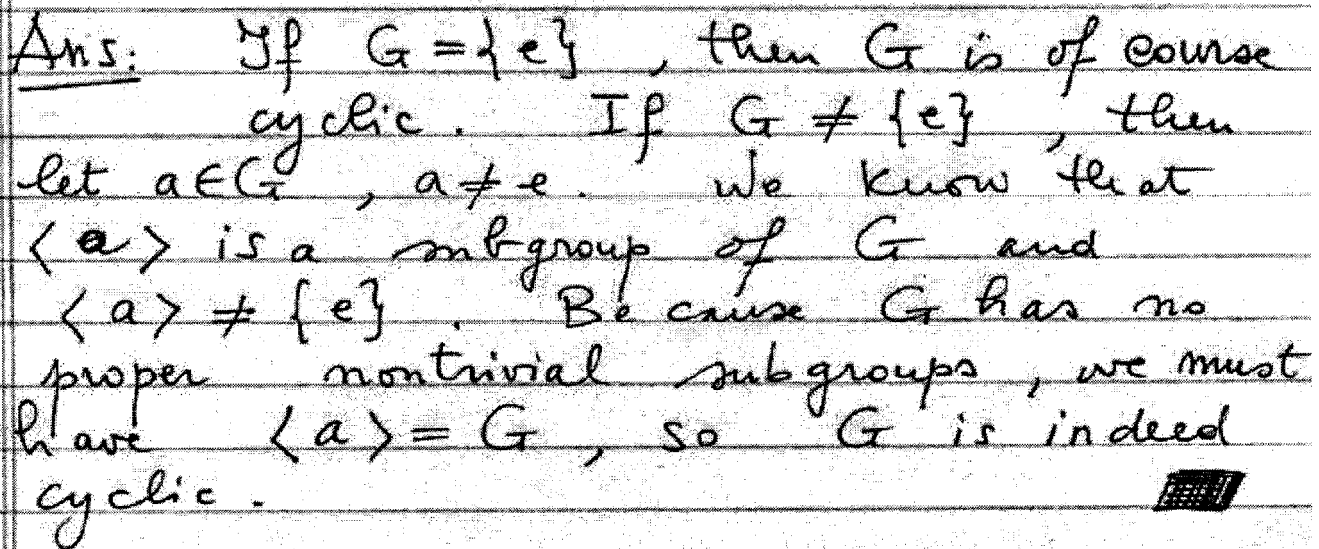 Ans: If G = {e} , then G is of course
cyclic. If G ≠ {e} , then
let a ∈ G , a ≠ e . We know that
⟨a⟩ is a subgroup of G and
⟨a⟩ ≠ {e} . Because G has no
proper nontrivial subgroups , we must
have ⟨a⟩ = G , so G is indeed
cyclic .